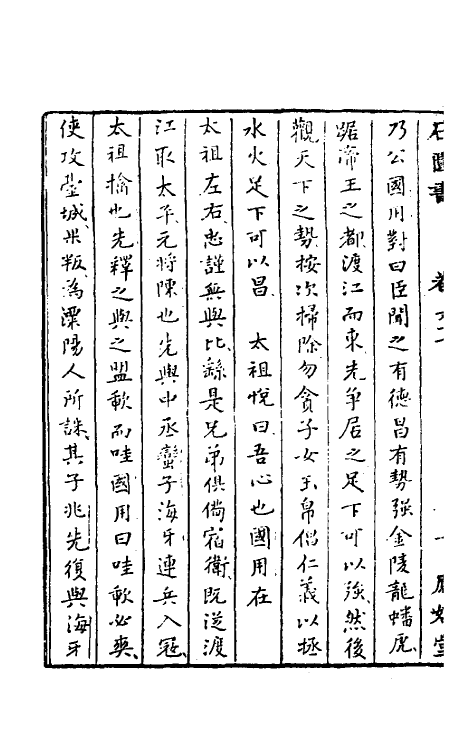 石匱書　卷六一
乃公國用對曰臣聞之有德昌有勢強金陵龍蟠虎
踞帝王之都渡江而東先爭居之足下可以強然後
觀天下之勢按次掃除勿貪子女玉帛倡仁義以拯
水火足下可以昌　太祖悅曰吾心也國用在
太祖左右忠謹無與比繇是兄弟俱備宿衛既從渡
江取太平元將陳也先與中丞蠻子海牙連兵入寇
太祖擒也先釋之與之盟歃而哇國用曰哇歃必爽
使攻臺城果叛為溧陽人所誅其子兆先復與海牙